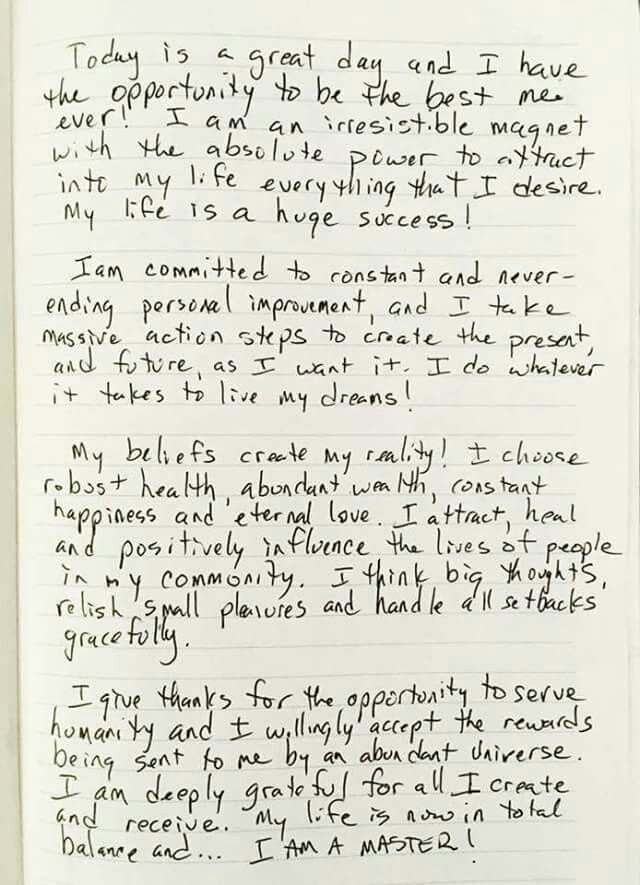 Today is a great day and I have
the opportunity to be the best me
ever! I am an irresistible magnet
with the absolute power to attract
into my life everything that I desire.
My life is a huge success!
I am committed to constant and never-
ending personal improvement, and I take
massive action steps to create the present,
and future, as I want it. I do whatever
it takes to live my dreams!
My beliefs create my reality! I choose
robust health, abundant wealth, constant
happiness and eternal love. I attract, heal
and positively influence the lives of people
in my community. I think big thoughts,
relish small pleasures and handle all setbacks
gracefully.
I give thanks for the opportunity to serve
humanity and I willingly accept the rewards
being sent to me by an abundant Universe.
I am deeply grateful for all I create
and receive. My life is now in total
balance and... I AM A MASTER!